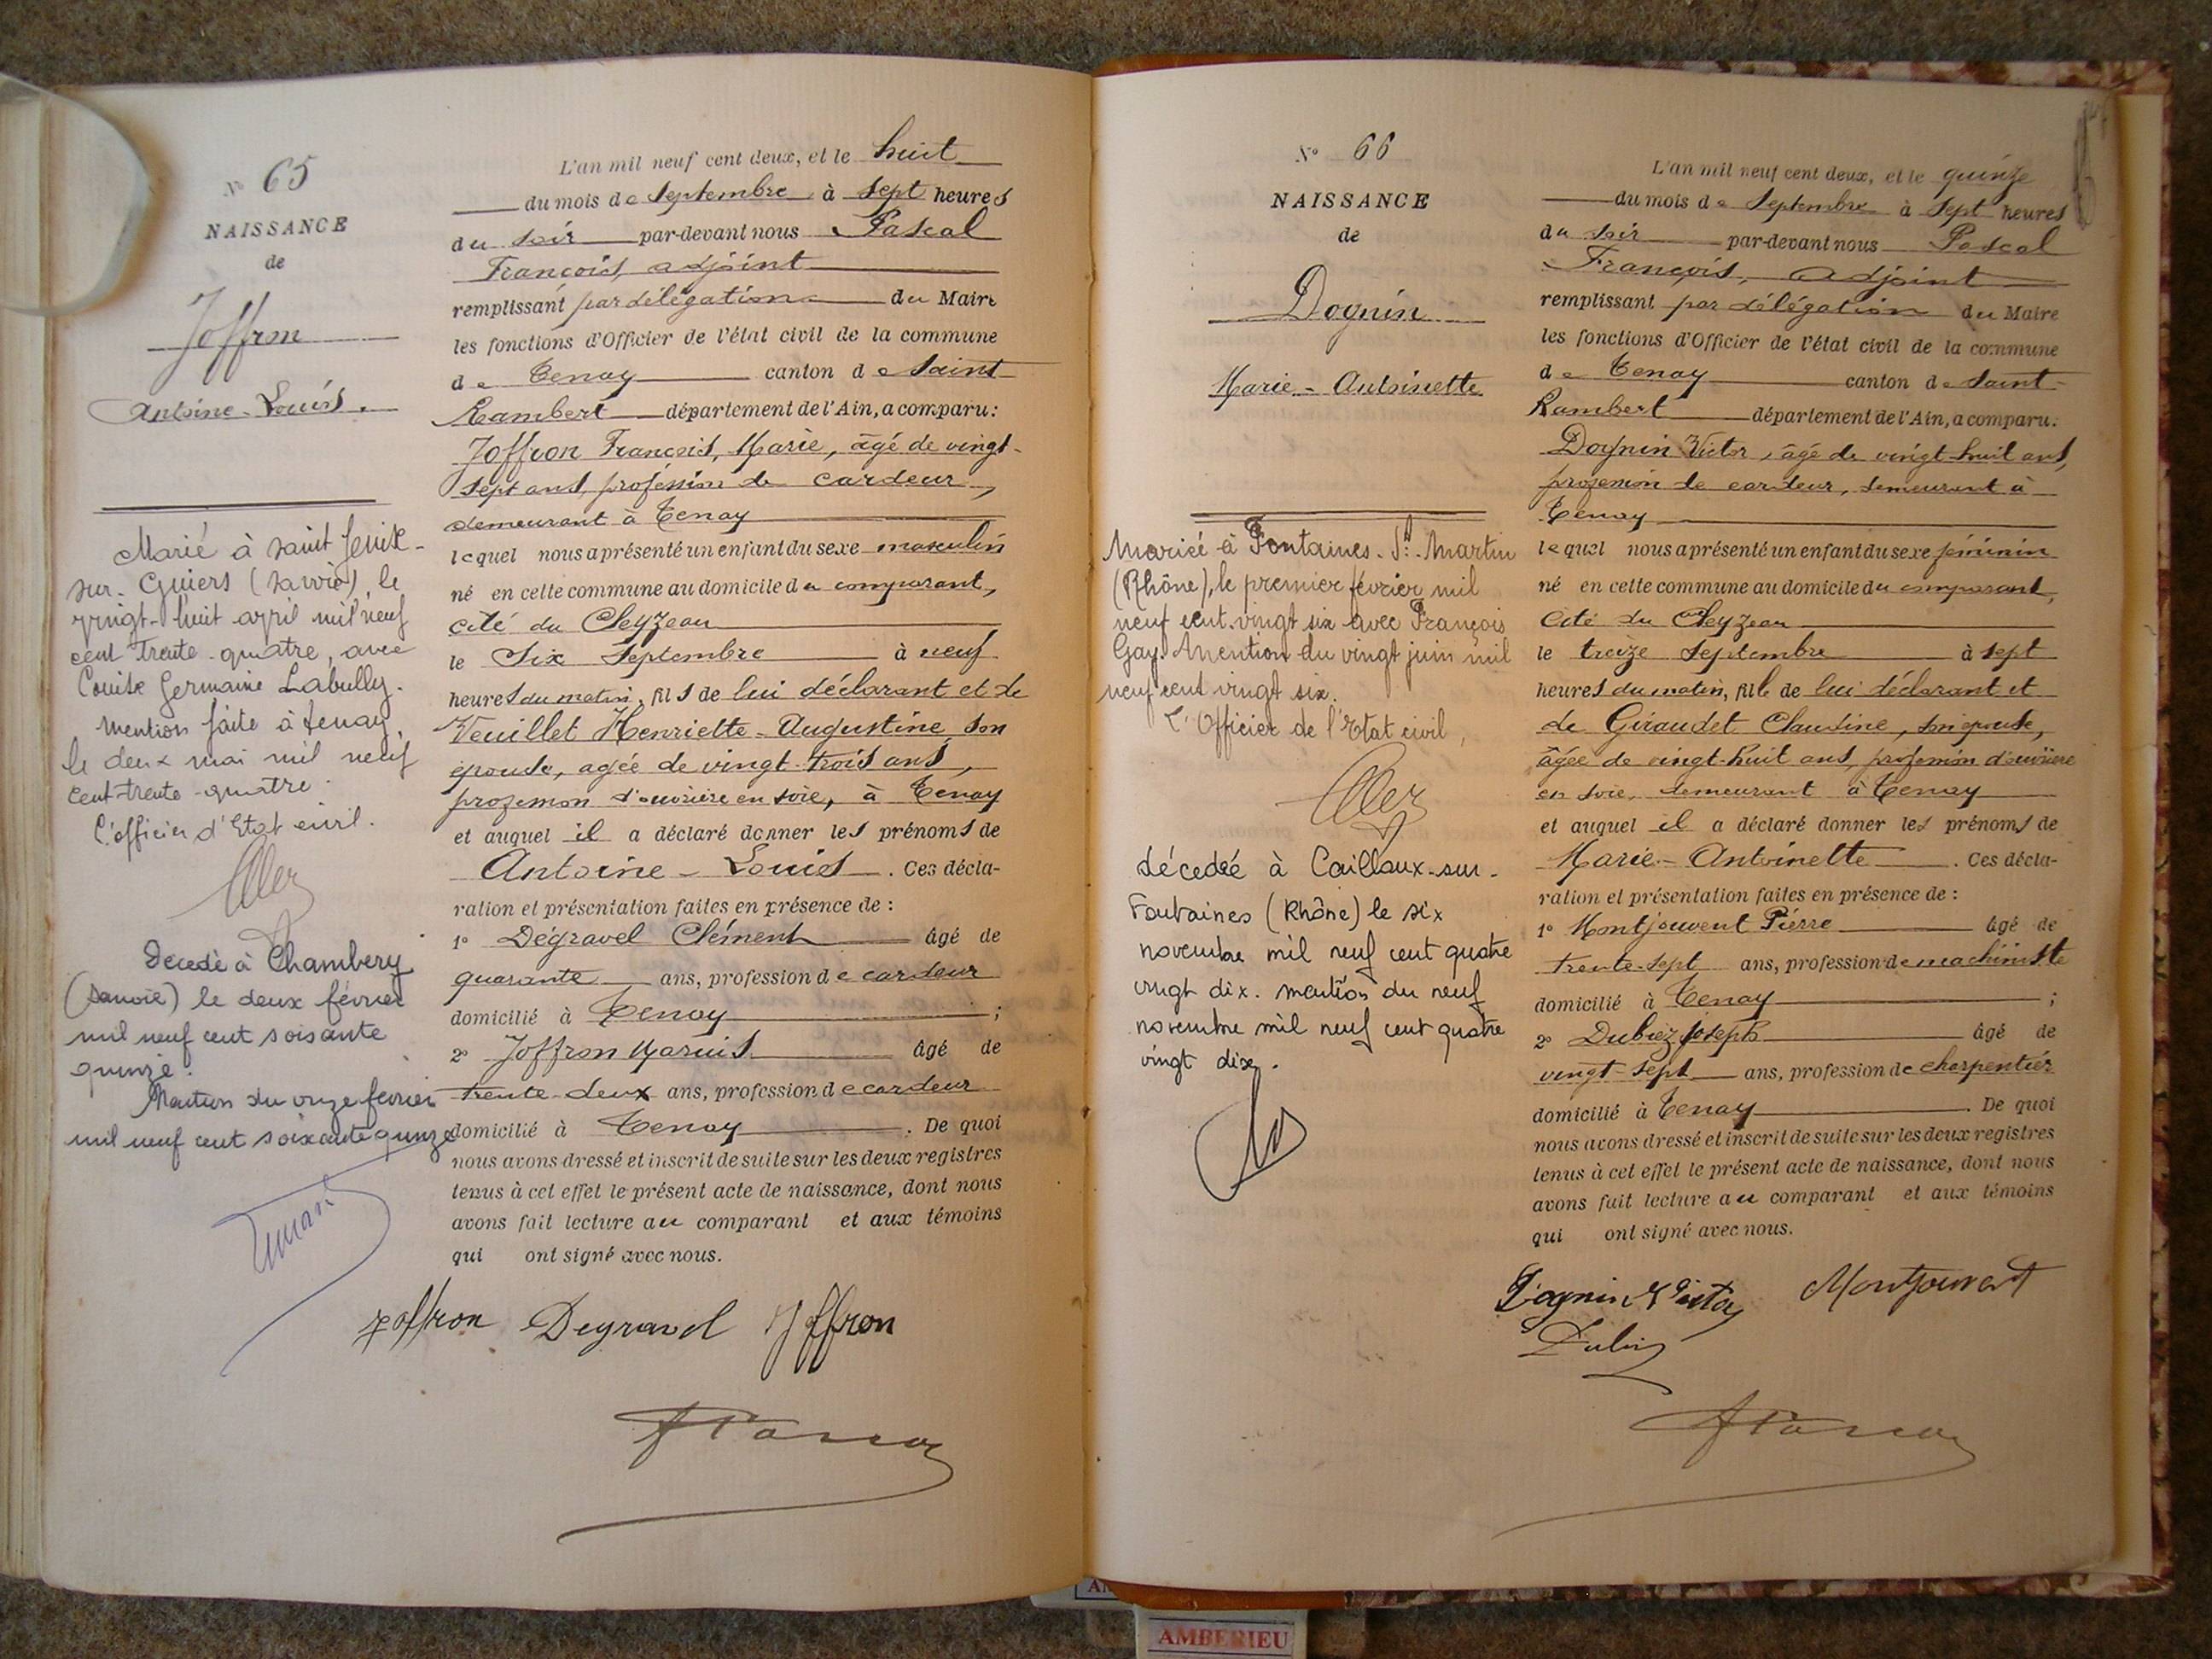 N° 65
NAISSANCE
de
Joffron
Antoine-Louis.
Marié à Saint Genix-
sur-Guiers (Savoie), le
vingt-huit avril mil neuf
cent trente-quatre, avec
Louise Germaine Labully.
Mention faite à Tenay
le deux mai mil neuf
cent-trente-quatre.
L'officier d'Etat civil.
Décédé à Chambery
(Savoie) le deux février
mil neuf cent soisante
quinze.
Mention du onze fevrier
mil neuf cent soixante quinze
L'an mil neuf cent deux, et le huit
du mois de Septembre à sept heures
du soir par-devant nous Pascal
François, adjoint
remplissant par délégation du Maire
les fonctions d'Officier de l'état civil de la commune
de Tenay canton de Saint-
Rambert département de l'Ain, a comparu:
Joffron François, Marie, âgé de vingt-
sept ans, profession de cardeur,
demeurant à Tenay
lequel nous a présenté un enfant du sexe masculin
né en cette commune au domicile du comparant,
cité du Cleyzeau
le Six Septembre à neuf
heures du matin, fils de lui déclarant et de
Veuillet Henriette-Augustine, son
épouse, agée de vingt-trois ans,
profession d'ouvrière en soie, à Tenay
et auquel il a déclaré donner les prénoms de
Antoine-Louis. Ces décla-
ration et présentation faites en présence de :
1° Dégravel Clément âgé de
quarante ans, profession de cardeur
domicilié à Tenay ;
2° Joffron Marius âgé de
trente-deux ans, profession de cardeur
domicilié à Tenay. De quoi
nous avons dressé et inscrit de suite sur les deux registres
tenus à cet effet le présent acte de naissance, dont nous
avons fait lecture au comparant et aux témoins
qui ont signé avec nous.
Joffron Degravel Joffron
N° 66
NAISSANCE
de
Dognin
Marie-Antoinette
Mariée à Fontaines-St-Martin
(Rhône), le premier février mil
neuf cent-vingt six avec François
Gay. Mention du vingt juin mil
neuf cent vingt six.
L'Officier de l'Etat civil,
décédée à Cailloux-sur-
Fontaines (Rhône) le six
novembre mil neuf cent quatre
vingt dix. mention du neuf
novembre mil neuf cent quatre
vingt dix.
L'an mil neuf cent deux, et le quinze
du mois de Septembre à sept heures
du soir par-devant nous Pascal
François, adjoint
remplissant par délégation du Maire
les fonctions d'Officier de l'état civil de la commune
de Tenay canton de Saint-
Rambert département de l'Ain, a comparu:
Dognin Victor, âgé de vingt-huit ans,
profession de cardeur, demeurant à
Tenay
lequel nous a présenté un enfant du sexe féminin
né en cette commune au domicile du comparant,
Cité du Cleyzeau
le treize Septembre à sept
heures du matin, fille de lui déclarant et
de Giraudet Claudine, son épouse,
âgée de vingt-huit ans, profession d'ouvrière
en soie, demeurant à Tenay
et auquel il a déclaré donner les prénoms de
Marie-Antoinette. Ces décla-
ration et présentation faites en présence de :
1° Montjouvent Pierre âgé de
trente-sept ans, profession de machiniste
domicilié à Tenay ;
2° Dubiez Joseph âgé de
vingt-sept ans, profession de charpentier
domicilié à Tenay. De quoi
nous avons dressé et inscrit de suite sur les deux registres
tenus à cet effet le présent acte de naissance, dont nous
avons fait lecture au comparant et aux témoins
qui ont signé avec nous.
Dognin Victor Montjouvent
AMBERIEU